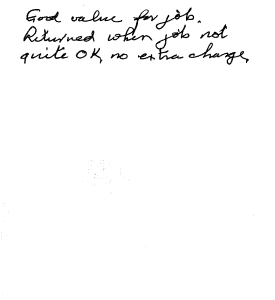 Good value for job.
Returned when job not
quite OK, no extra charge,